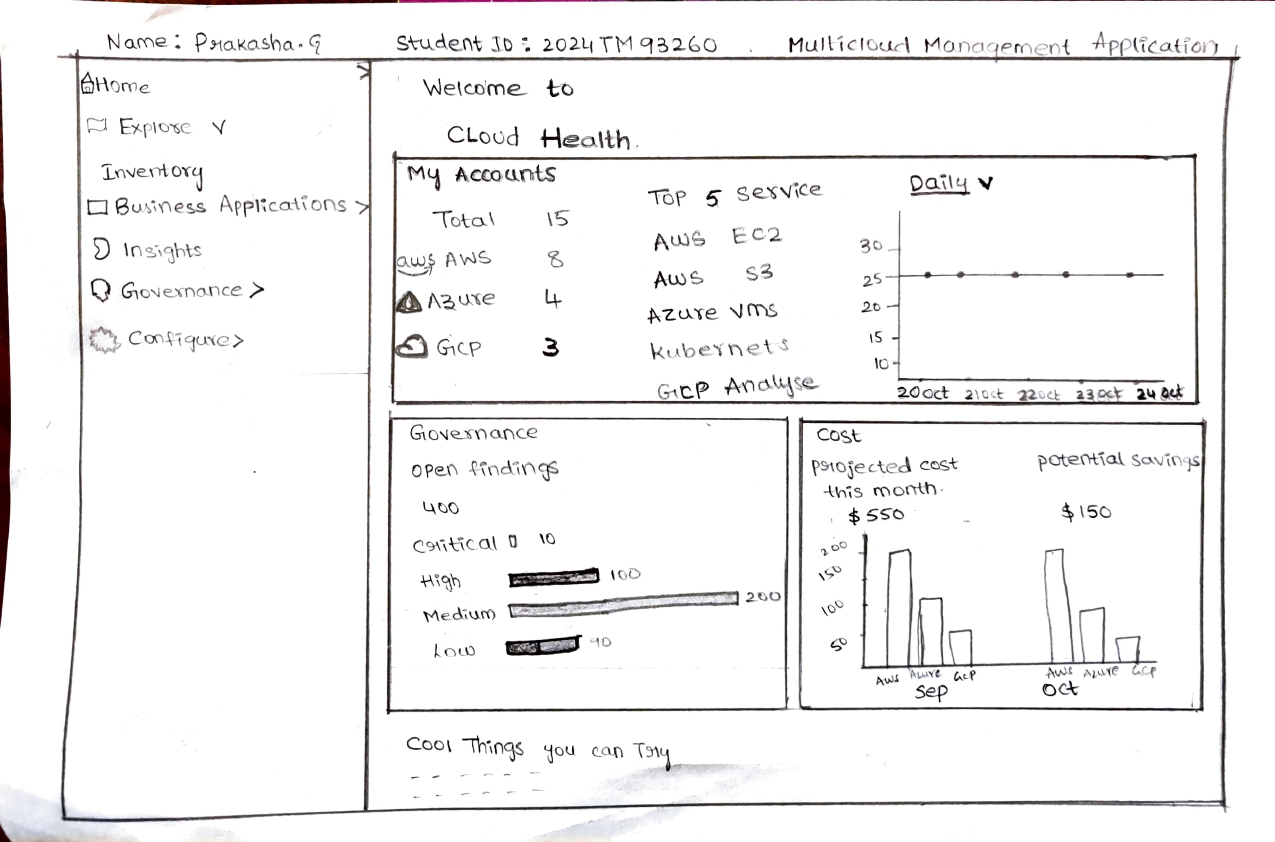 Name: Prakasha.G Student ID: 2024TM93260 Multicloud Management Application
Home
Explore
Inventory
Business Applications >
Insights
Governance >
Configure >
Welcome to
Cloud Health.
My Accounts
Total 15
aws AWS 8
Azure 4
GCP 3
Top 5 Service
Aws EC2
Aws S3
Azure Vms
Kubernets
GCP Analyse
Daily
30
25
20
15
10
20oct 21oct 22oct 23oct 24oct
Governance
open findings
400
Critical 10
High 100
Medium 200
Low 90
Cost
projected cost
this month.
$550
potential savings
$150
200
150
100
50
Aws Azure GCP
Sep
Aws Azure GCP
Oct
Cool Things you can Try